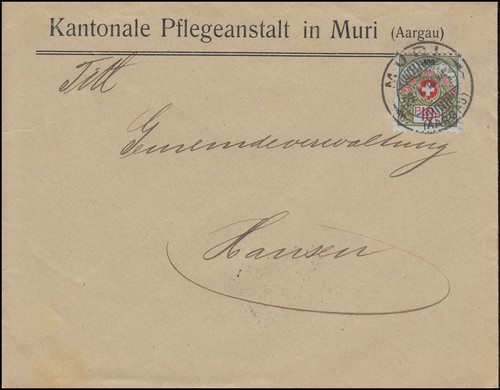 Kantonale Pflegeanstalt in Muri (Aargau)
Titl
MURI
(AARGAU)
10
Gemeindeverwaltung
Hausen